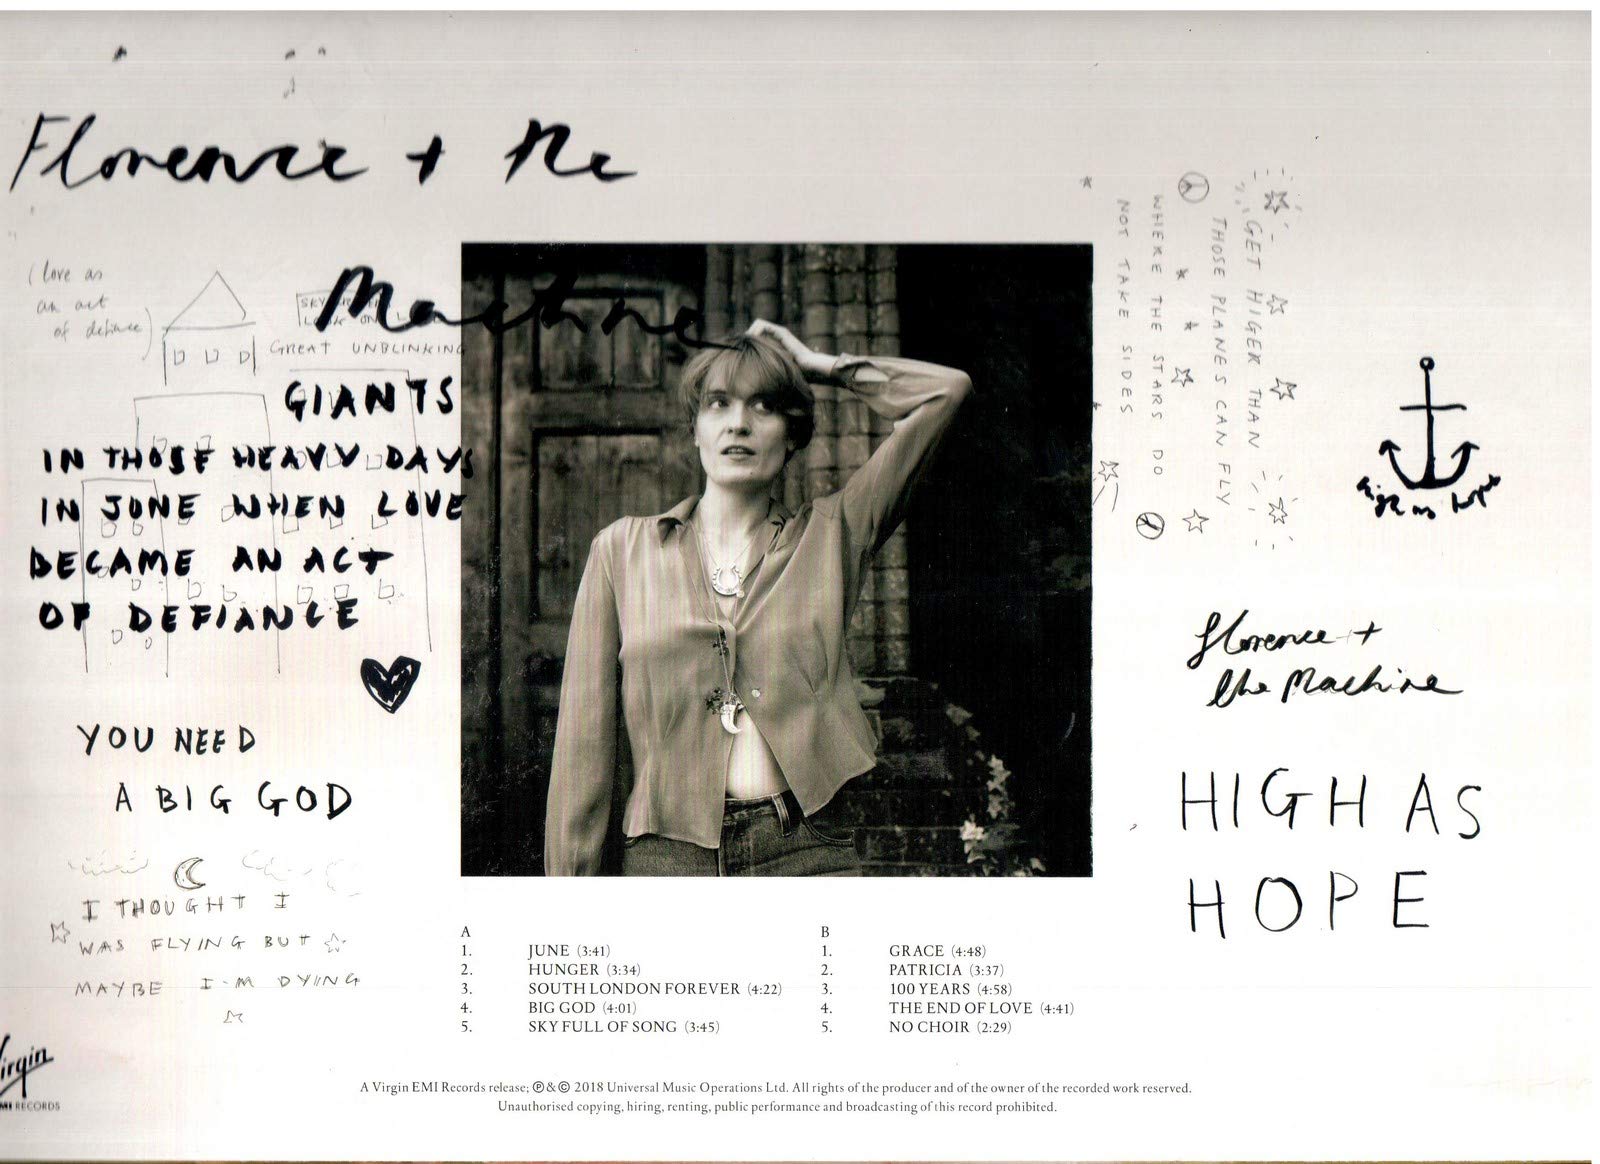 Florence + the
Machine
(love as
an act
of defiance)
GREAT UNBLINKING
GIANTS
IN THOSE HEAVY DAYS
IN JUNE WHEN LOVE
BECAME AN ACT
OF DEFIANCE
YOU NEED
A BIG GOD
I THOUGHT I
WAS FLYING BUT
MAYBE I'M DYING
GET HIGER THAN
THOSE PLANES CAN FLY
WHERE THE STARS DO
NOT TAKE SIDES
high as hope
Florence +
the Machine
HIGH AS
HOPE
A
1. JUNE (3:41)
2. HUNGER (3:34)
3. SOUTH LONDON FOREVER (4:22)
4. BIG GOD (4:01)
5. SKY FULL OF SONG (3:45)
B
1. GRACE (4:48)
2. PATRICIA (3:37)
3. 100 YEARS (4:58)
4. THE END OF LOVE (4:41)
5. NO CHOIR (2:29)
Virgin
EMI RECORDS
A Virgin EMI Records release; ℗ & © 2018 Universal Music Operations Ltd. All rights of the producer and of the owner of the recorded work reserved.
Unauthorised copying, hiring, renting, public performance and broadcasting of this record prohibited.